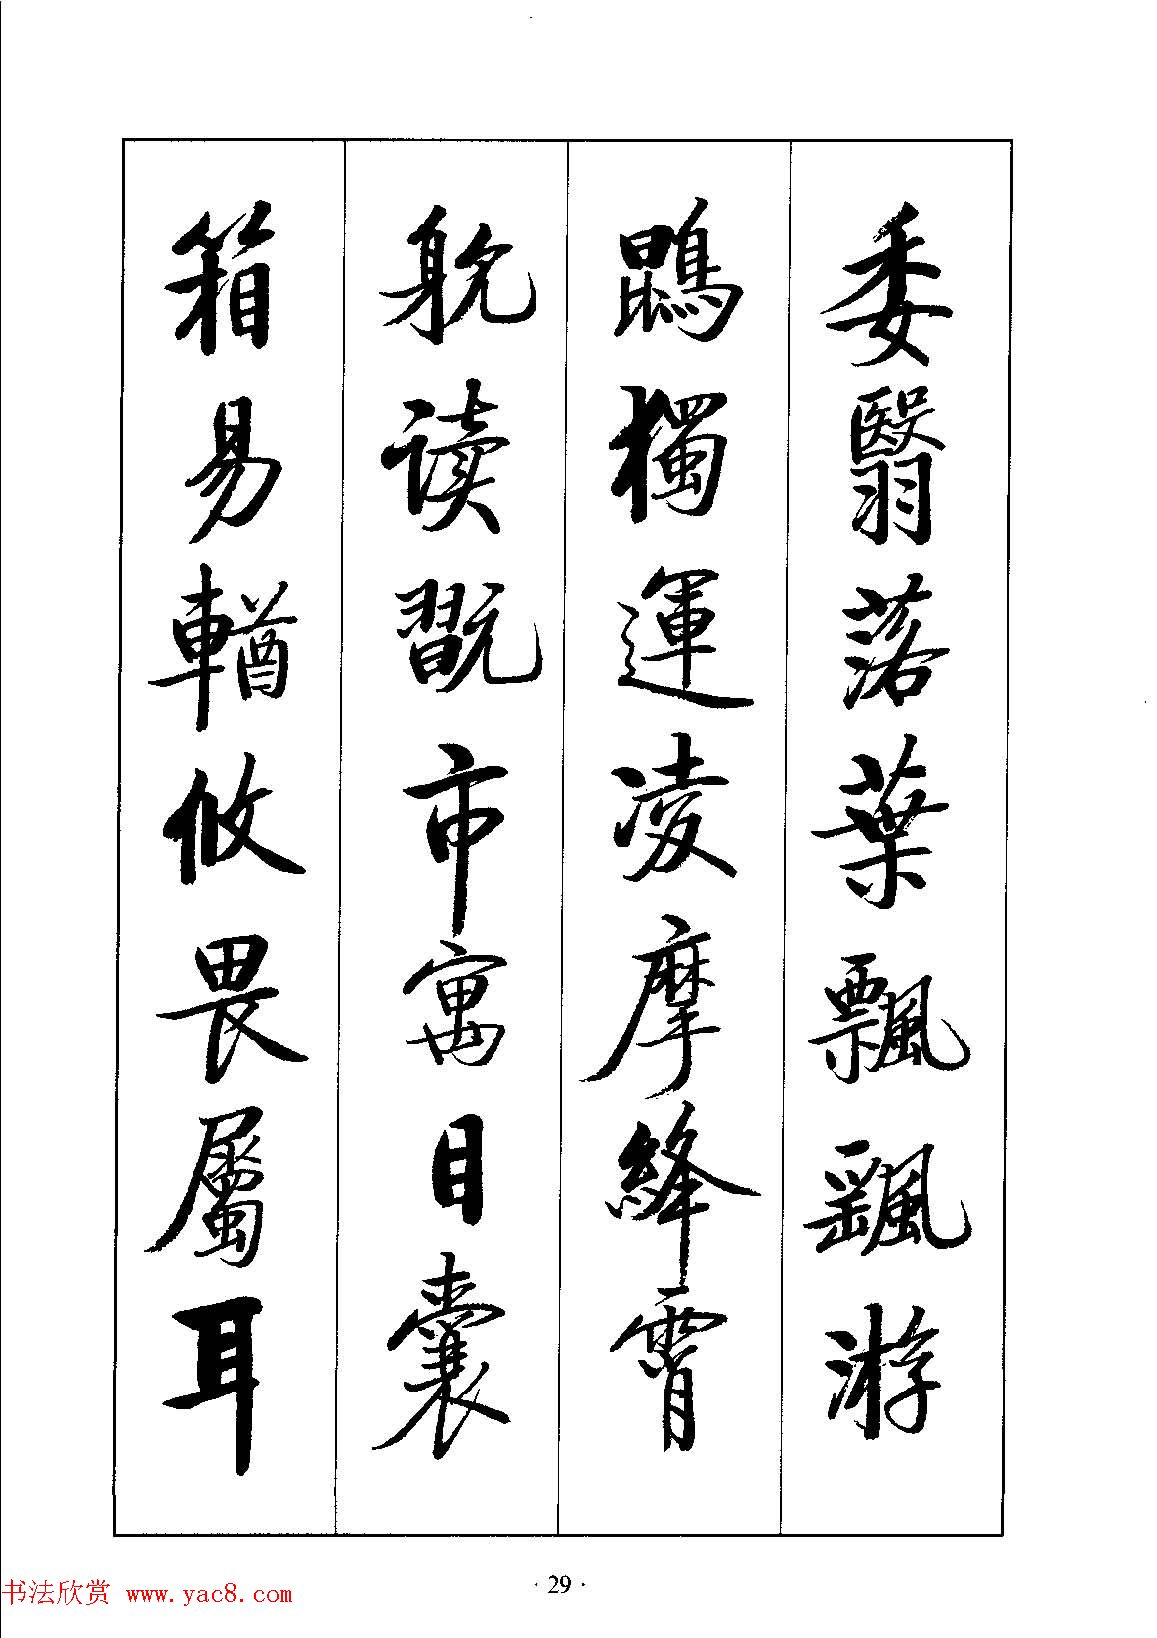 委翳落葉飄颻游
鵾獨運凌摩絳霄
躭读翫市寓目囊
箱易輶攸畏屬耳
· 29 ·
书法欣赏 www.yac8.com